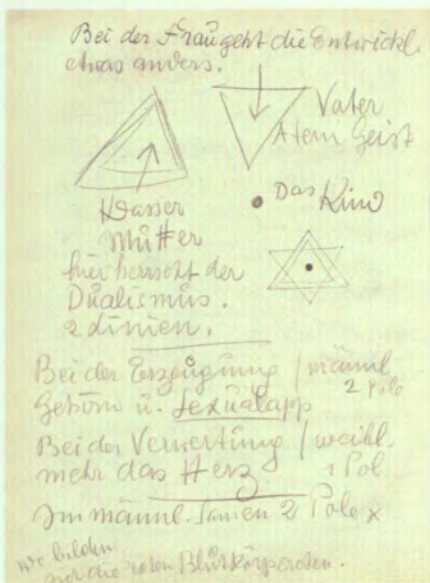 Bei der Frau geht die Entwickl.
etwas anders.
Vater
Atem Geist
Wasser
Mutter
Das Kind
hier herrscht der
Dualismus.
2 Linien.
Bei der Erzeugung / männl
2 Pole
Gehirn u. Sexualapp
Bei der Verwertung / weibl.
mehr das Herz 1 Pol
Im männl. Samen 2 Pole x
wo bilden
die roten Blutkörperchen.